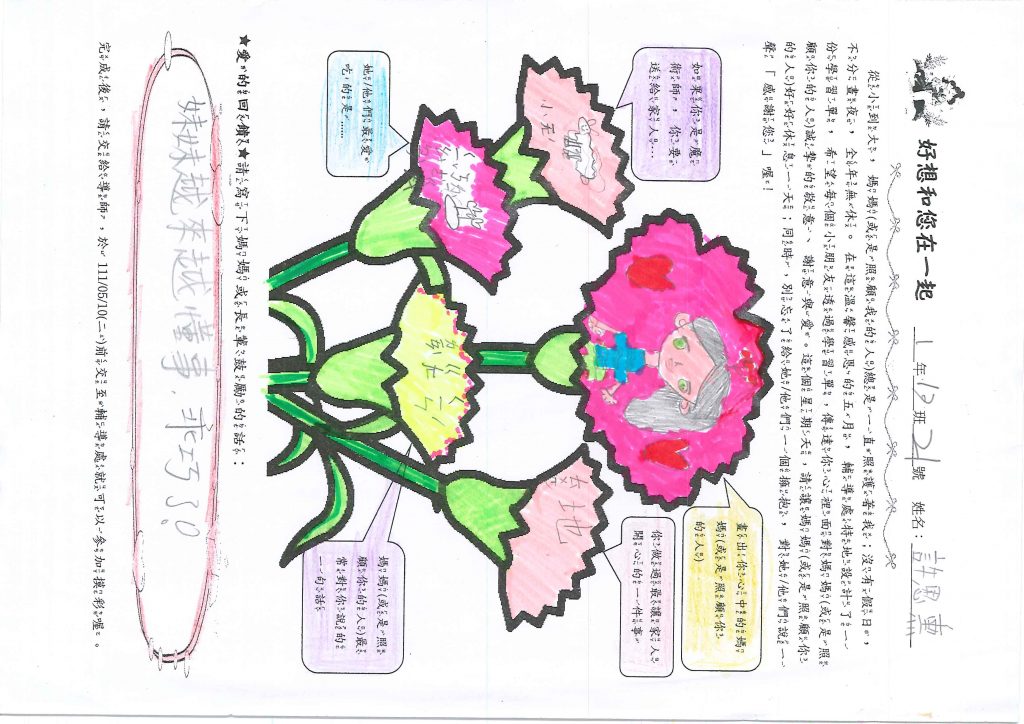 好想和您在一起 1年12班21號 姓名：許
從小到大，媽媽(或是照顧我的人)總是一直照護著我；沒有假日，
不分晝夜，全年無休。在這溫馨感恩的五月，輔導處特地設計了一
份學習單，希望每個小朋友透過學習單，傳達你心裡面對媽媽(或是照
顧你的人)誠摯的敬意、謝意與愛。這個星期天，請讓媽媽(或是照顧你
的人)好好休息一天；同時，別忘了給她/他們一個擁抱，對她/他們說一
聲「感謝您」喔!
如果你是魔
術師，你要
送給家人...
畫出你心中的媽
媽(或是照顧你
的人)
你做過最讓家人
開心的一件事
她/他們最愛
吃的是......
媽媽(或是照
顧你的人)最
常對你說的
一句話
拖地
★愛的回饋★請寫下媽媽或長輩鼓勵的話：
妹妹越來越懂事，乖巧了。
完成後，請交給導師，於111/05/10(二)前交至輔導處就可以參加摸彩喔。